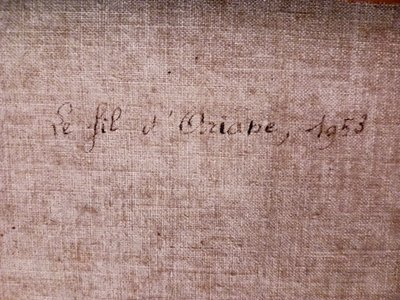 Le fil d'Ariane, 1953